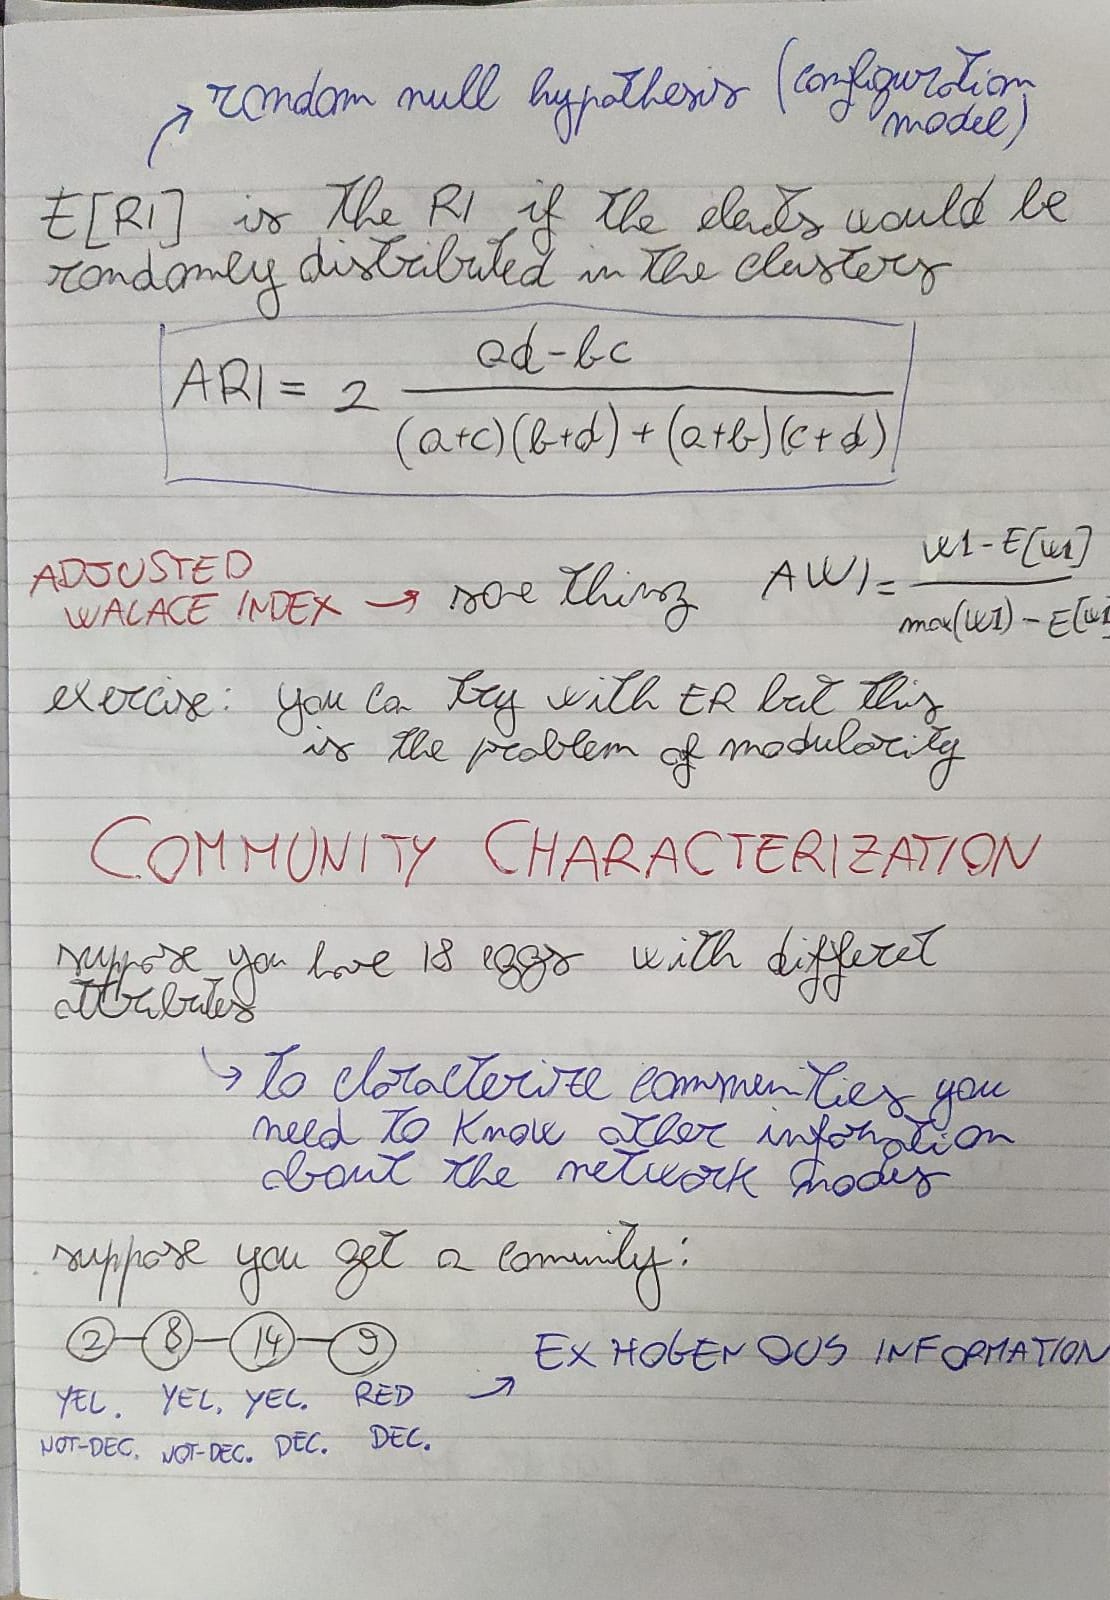 random null hypothesis (configuration
model)
E[RI] is the RI if the elents would be
randomly distributed in the clusters
ARI = 2 ad-bc / (a+c)(b+d) + (a+b)(c+d)
ADJUSTED
WALACE INDEX → same thing AWI = WI - E[WI] / max(WI) - E[WI]
exercise: you can try with ER but this
is the problem of modularity
COMMUNITY CHARACTERIZATION
suppose you have 18 eggs with differet
attributes
→ to characterize communities you
need to know other information
about the network nodes
suppose you get a comunity:
2 8 14 9
EXHOGENOUS INFORMATION
YEL. YEL. YEL. RED →
NOT-DEC. NOT-DEC. DEC. DEC.